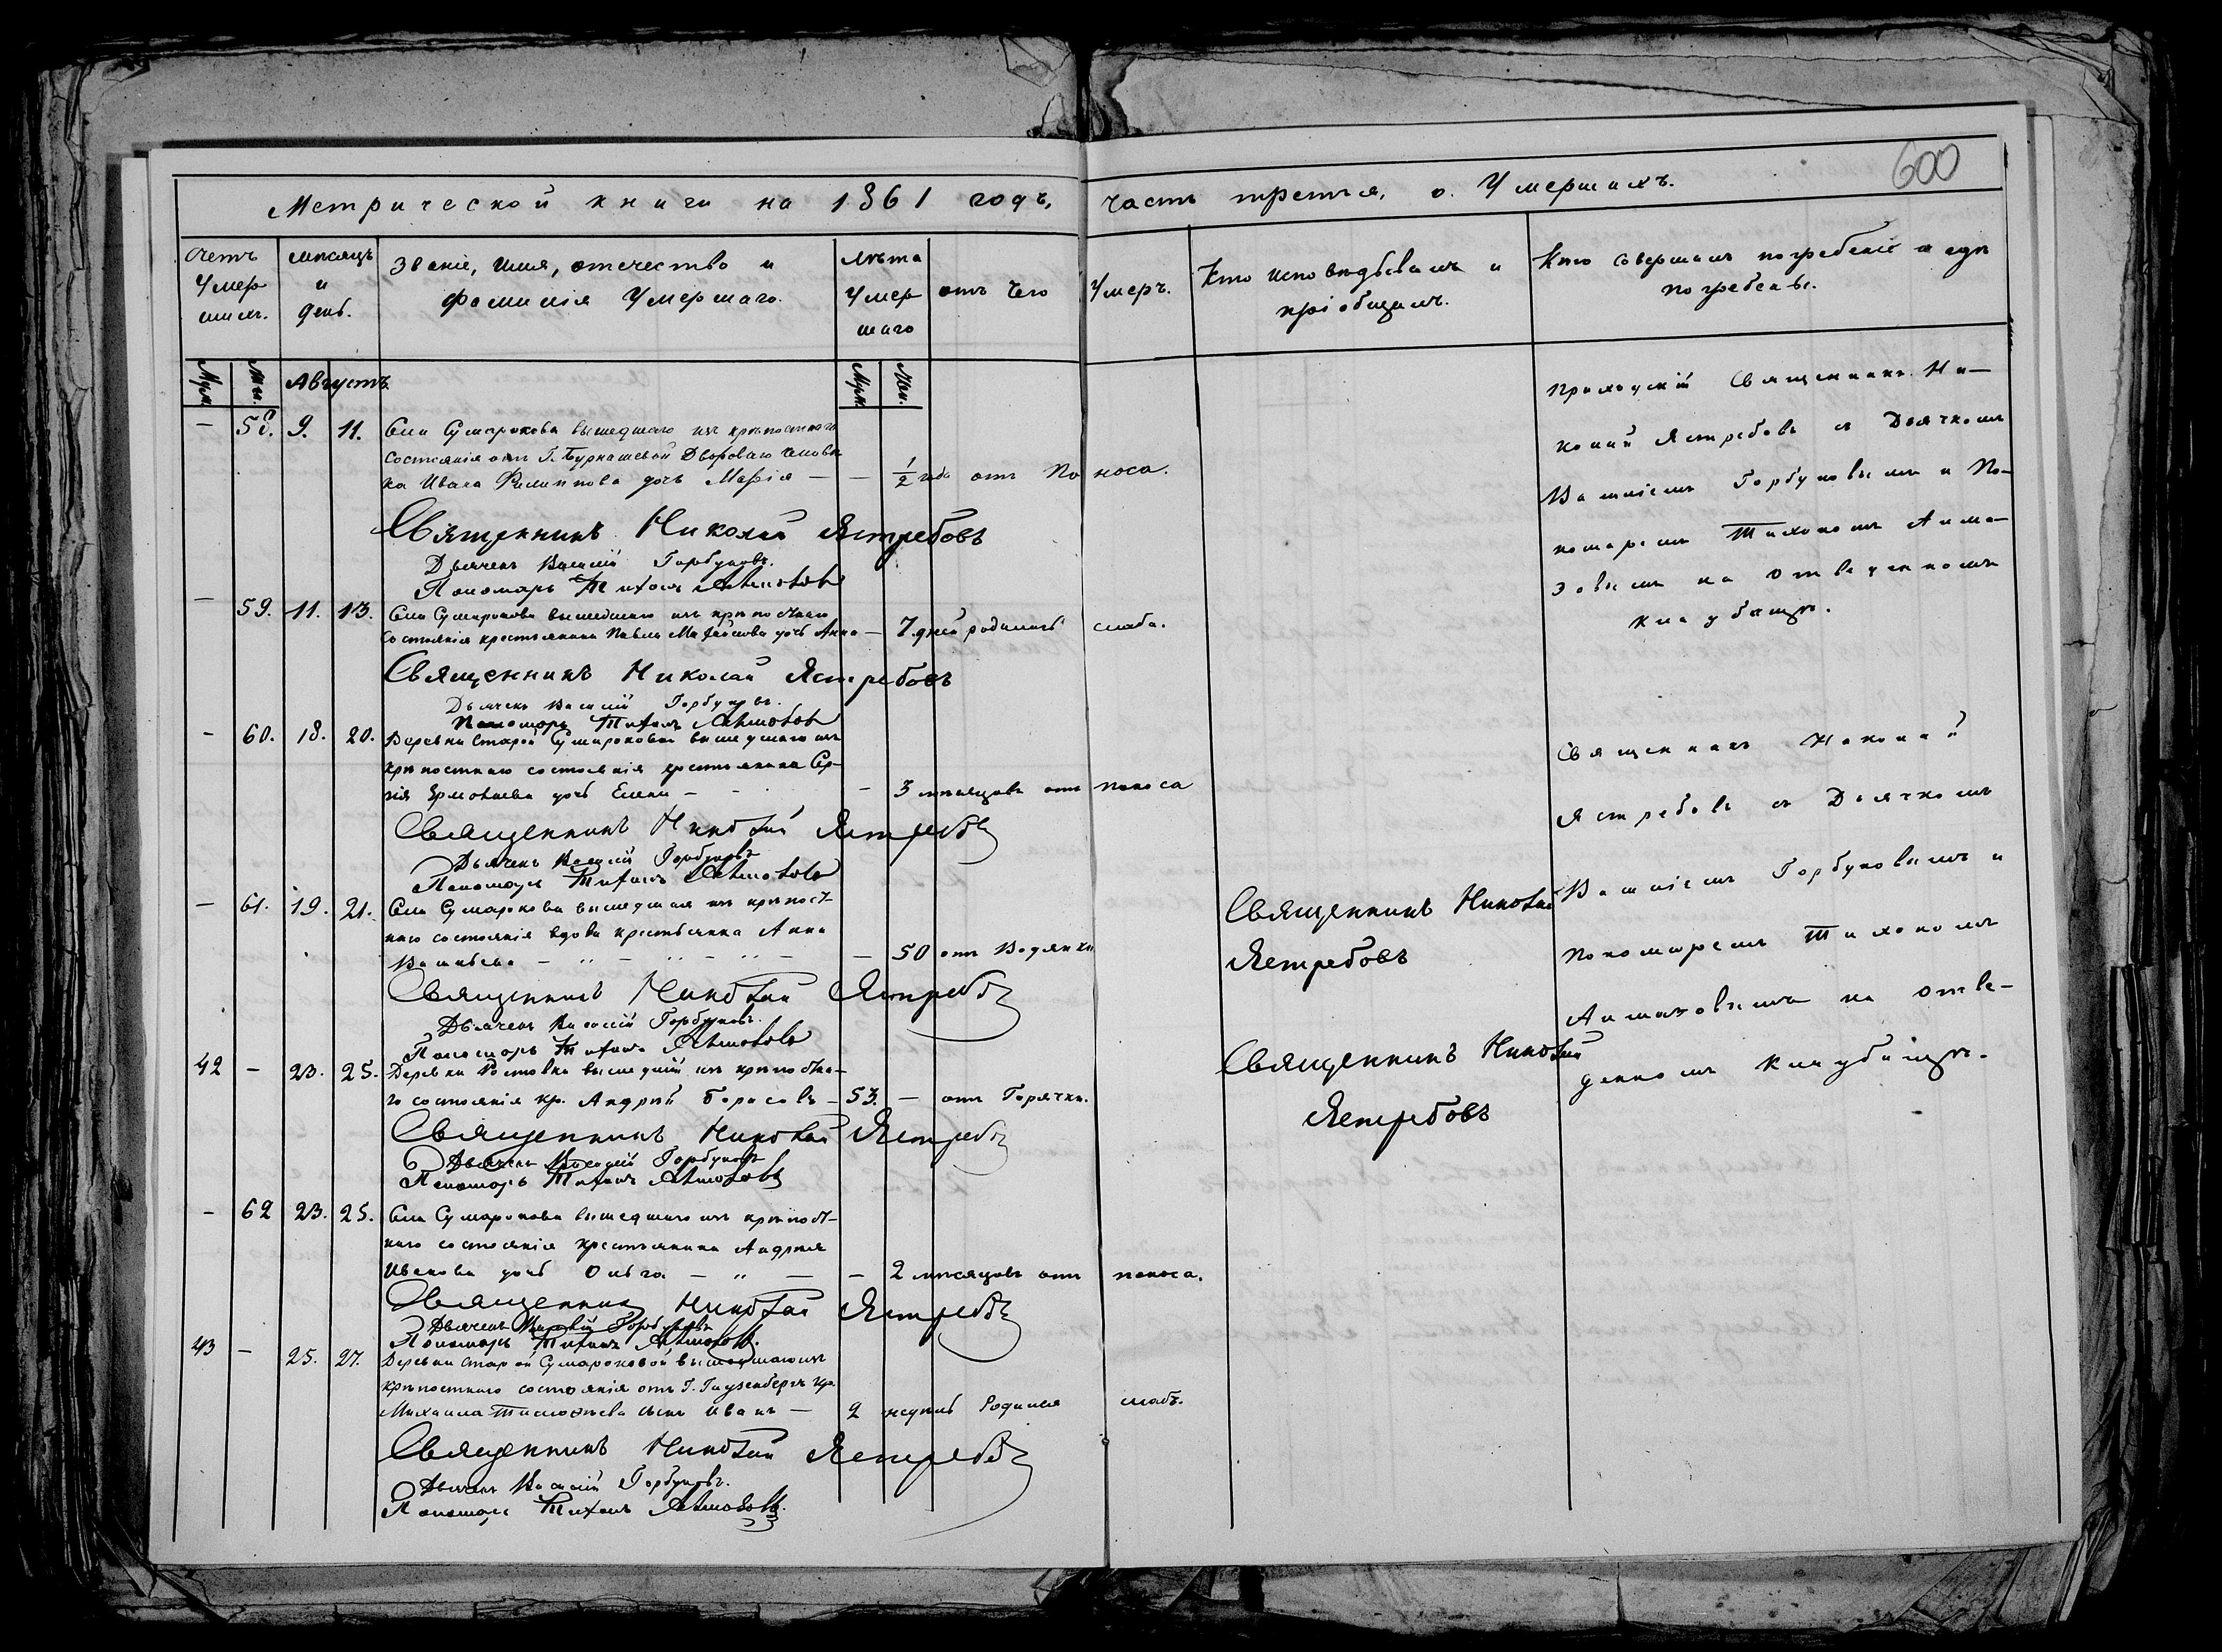 600
Метрической книги на 1861 годъ, часть третья, о Умершихъ.
Счетъ Умершихъ.
Мѣсяцъ и день.
Званіе, имя, отечество и фамилія Умершаго.
Лѣта Умершаго
отъ чего Умеръ.
Кто исповѣдывалъ и пріобщалъ.
Кто совершалъ погребеніе и гдѣ погребены.
Муж. Жен. Августъ Муж. Жен.
— 58. 9. 11. Села Сумарокова вышедшаго изъ крѣпостнаго
состоянія отъ Г. Бурнашевой Двороваго человѣ-
ка Ивана Филиппова дочь Марія — — ½ года отъ поноса.
Священникъ Николай Ястребовъ
Дьячекъ Василій Горбуновъ.
Пономарь Тихонъ
— 59. 11. 13. Села Сумарокова вышедшаго изъ крѣпостнаго
состоянія крестьянина Павла дочь Анна — 7 дней родилась слаба.
Священникъ Николай Ястребовъ
Дьячекъ Василій Горбуновъ.
Пономарь Тихонъ
— 60. 18. 20. Деревни Старой Сумароковой вышедшаго изъ
крѣпостнаго состоянія крестьянина Сер-
гія Ермолаева дочь Елена — — 3 мѣсяцовъ отъ поноса
Священникъ Николай Ястребовъ
Дьячекъ Василій Горбуновъ
Пономарь Тихонъ
— 61. 19. 21. Села Сумарокова вышедшая изъ крѣпост-
наго состоянія вдова крестьянка Анна
Васильева — „ — „ — „ — — 50 отъ Водянки
Священникъ Николай Ястребовъ
Дьячекъ Василій Горбуновъ.
Пономарь Тихонъ
42 — 23. 25. Деревни вышедшій изъ крѣпостна-
го состоянія кр. Андрей Борисовъ — 53. — отъ Горячки.
Священникъ Николай Ястребовъ
Дьячекъ Василій Горбуновъ
Пономарь Тихонъ
— 62 23. 25. Села Сумарокова вышедшаго изъ крѣпост-
наго состоянія крестьянина Андрея
Иванова дочь Ольга — „ — — 2 мѣсяцовъ отъ поноса.
Священникъ Николай Ястребовъ
Дьячекъ Василій Горбуновъ
Пономарь Тихонъ
43 — 25. 27. Деревни Старой Сумароковой вышедшаго изъ
крѣпостнаго состоянія отъ Г. кр.
Михаила Тимофеева сынъ Иванъ — 2 недѣль Родился слабъ.
Священникъ Николай Ястребовъ
Дьячекъ Василій Горбуновъ.
Пономарь Тихонъ
Священникъ Николай
Ястребовъ
Священникъ Николай
Ястребовъ
Приходскій Священникъ Ни-
колай Ястребовъ съ Дьячкомъ
Василіемъ Горбуновымъ и По-
номаремъ Тихономъ
на отведенномъ
кладбищѣ.
Священникъ Николай
Ястребовъ съ Дьячкомъ
Василіемъ Горбуновымъ и
Пономаремъ Тихономъ
на отве-
денномъ кладбищѣ.